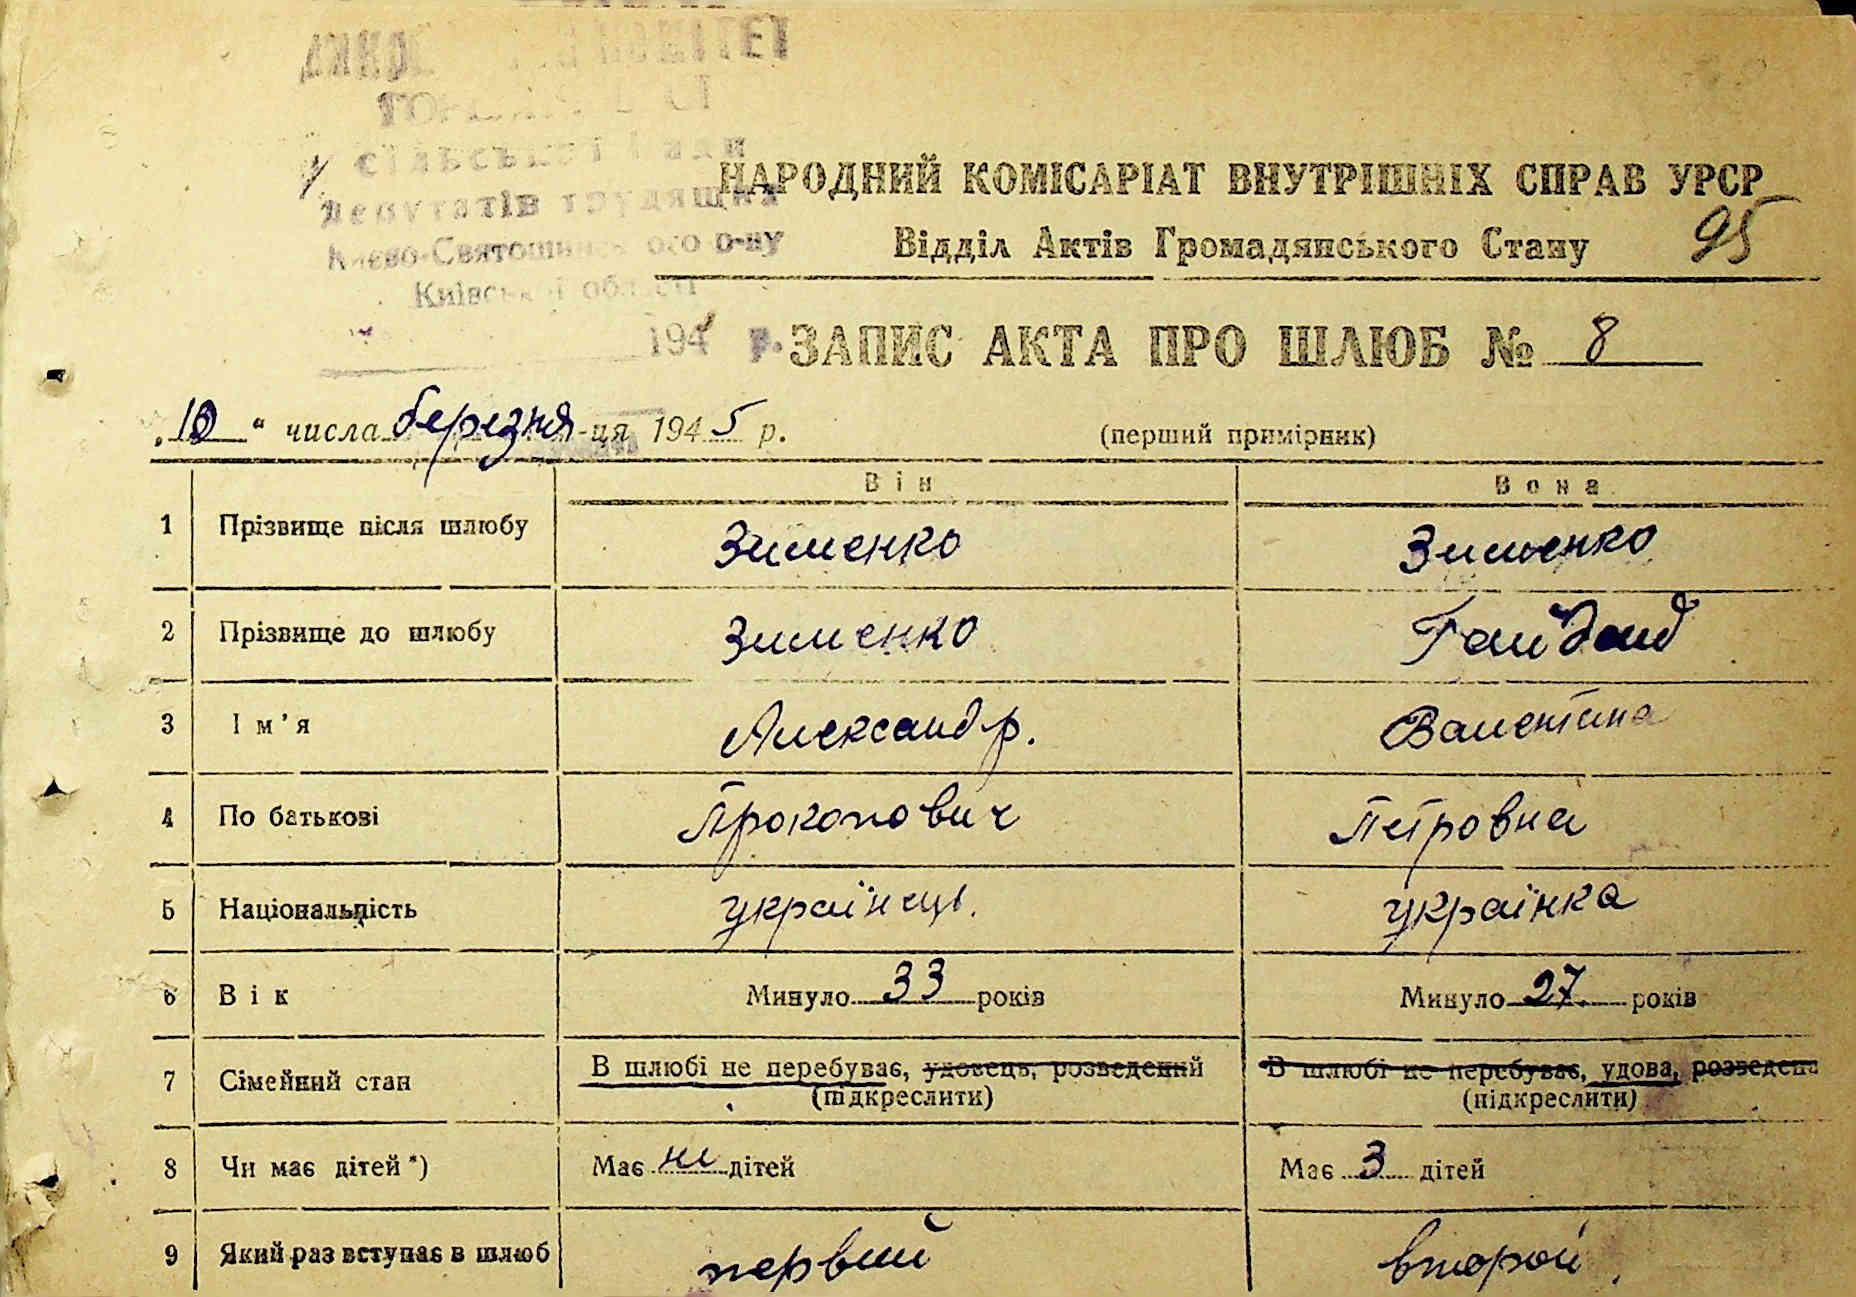 сільської Ради
депутатів трудящих
Києво-Святошинського р-ну
Київської області
194 р.
НАРОДНИЙ КОМІСАРІАТ ВНУТРІШНІХ СПРАВ УРСР
Відділ Актів Громадянського Стану
95
ЗАПИС АКТА ПРО ШЛЮБ № 8
„10“ числа березня-ця 1945 р. (перший примірник)
Він Вона
1 Прізвище після шлюбу Зименко Зименко
2 Прізвище до шлюбу Зименко
3 Ім'я Александр. Валентина
4 По батькові Прокопович Петровна
5 Національність українець. українка
6 Вік Минуло 33 років Минуло 27. років
7 Сімейний стан В шлюбі не перебуває, удовець, розведений В шлюбі не перебуває, удова, розведена
(підкреслити) (підкреслити)
8 Чи має дітей*) Має ні дітей Має 3 дітей
9 Який раз вступає в шлюб первий второй